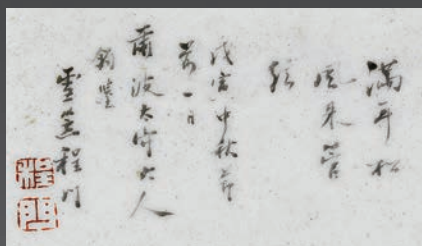 滿耳松
風來管
絃
戊寅中秋節
前一日
爾波太守大人
鈞鑒
雪笠程門
程門